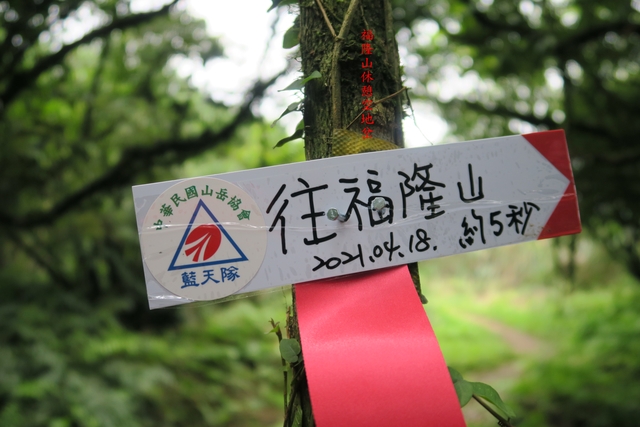 福隆山休憩空地岔
中華民國山岳協會
藍天隊
往福隆山
2021.04.18. 約5秒